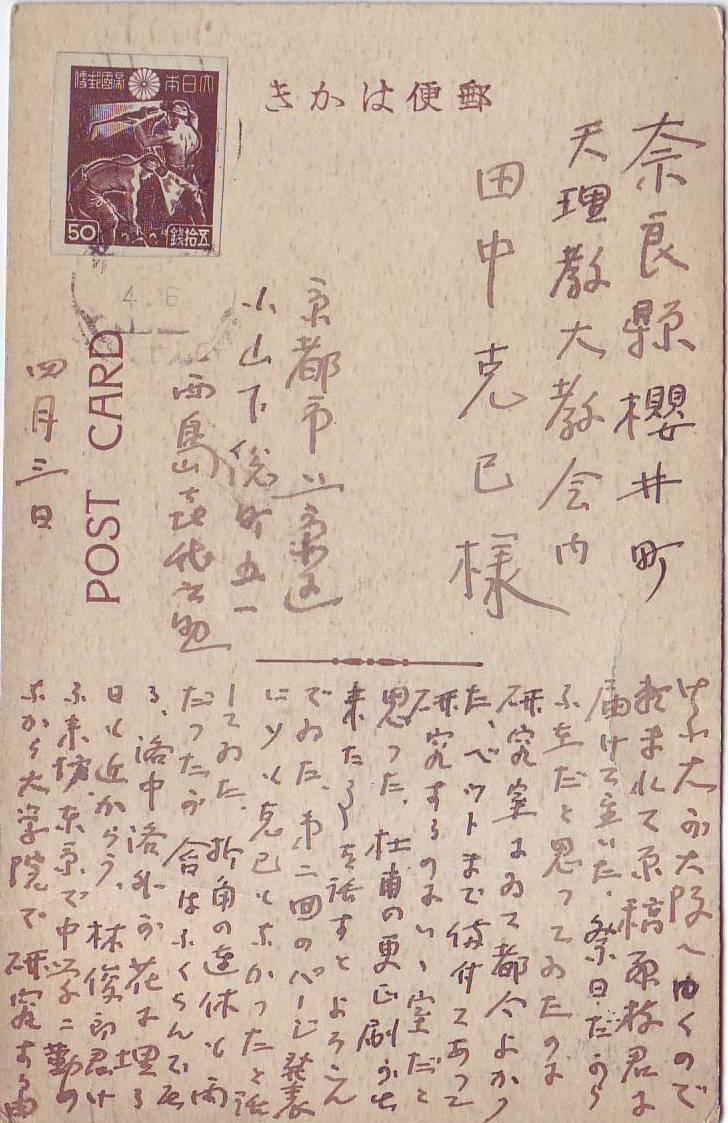 郵便はかき
大日本帝國郵便
50
五拾錢
4. 6
POST CARD
奈良縣櫻井町
天理教大教会内
田中克己様
京都市上京区
小山下総町五一
西島喜代之助
四月三日
けふ大の大阪へゆくので
頼まれて原稿 君に
届けて置いた。祭日だから
ふ在だと思ってゐたのに
研究室にゐて都合よかっ
た、ベットまで備付てあって
研究するのにいゝ室だと
思った。杜甫の更正刷が出
来たらうと話すとよろこん
でゐた。第二回のパージ発表
に 克己もなかったと話
してゐた。折角の連休も雨
だったが 合はふくらんで
る、洛中洛外が花に埋る
日も近からう。林俊郎君け
ふ来訪。東京で中学に勤め
ながら大学院で研究する由